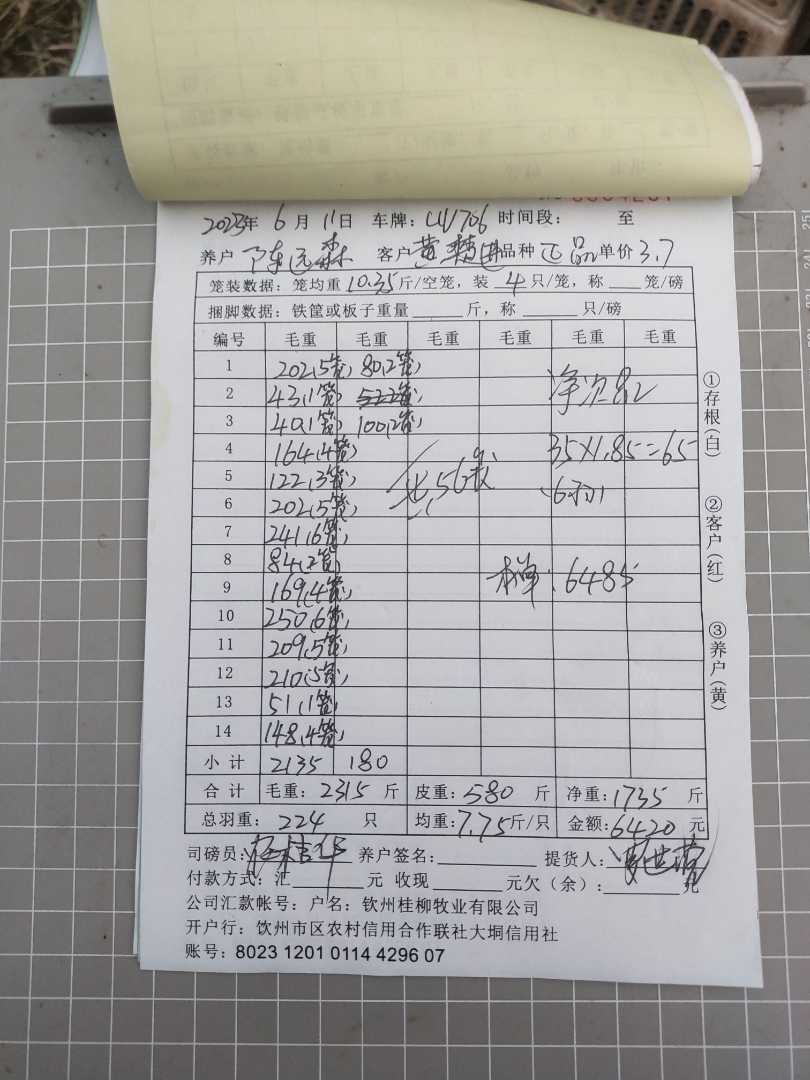 2023年 6 月 11日 车牌: 时间段: 至
养户 陈远森 客户 黄 品种 正品 单价 3.7
笼装数据: 笼均重 10.35 斤/空笼, 装 4 只/笼, 称 笼/磅
捆脚数据: 铁筐或板子重量 斤, 称 只/磅
编号 毛重 毛重 毛重 毛重 毛重 毛重
1 202(5笼) 80(2笼)
2 43(1笼)
3 40(1笼) 100(2笼)
净次品
4 164(4笼) 35×1.85=65
5 122(3笼) 共56笼
6 202(5笼)
7 241(6笼)
8 84(2笼)
9 169(4笼) 本单: 6485
10 250(6笼)
11 209(5笼)
12 210(5笼)
13 51(1笼)
14 148(4笼)
小计 2135 180
合计 毛重: 2315 斤 皮重: 580 斤 净重: 1735 斤
总羽重: 224 只 均重: 7.75 斤/只 金额: 6420 元
司磅员: 养户签名: 提货人:
付款方式: 汇 元 收现 元欠(余): 元
公司汇款帐号: 户名: 钦州桂柳牧业有限公司
开户行: 钦州市区农村信用合作联社大垌信用社
账号: 8023 1201 0114 4296 07
①存根(白)
②客户(红)
③养户(黄)